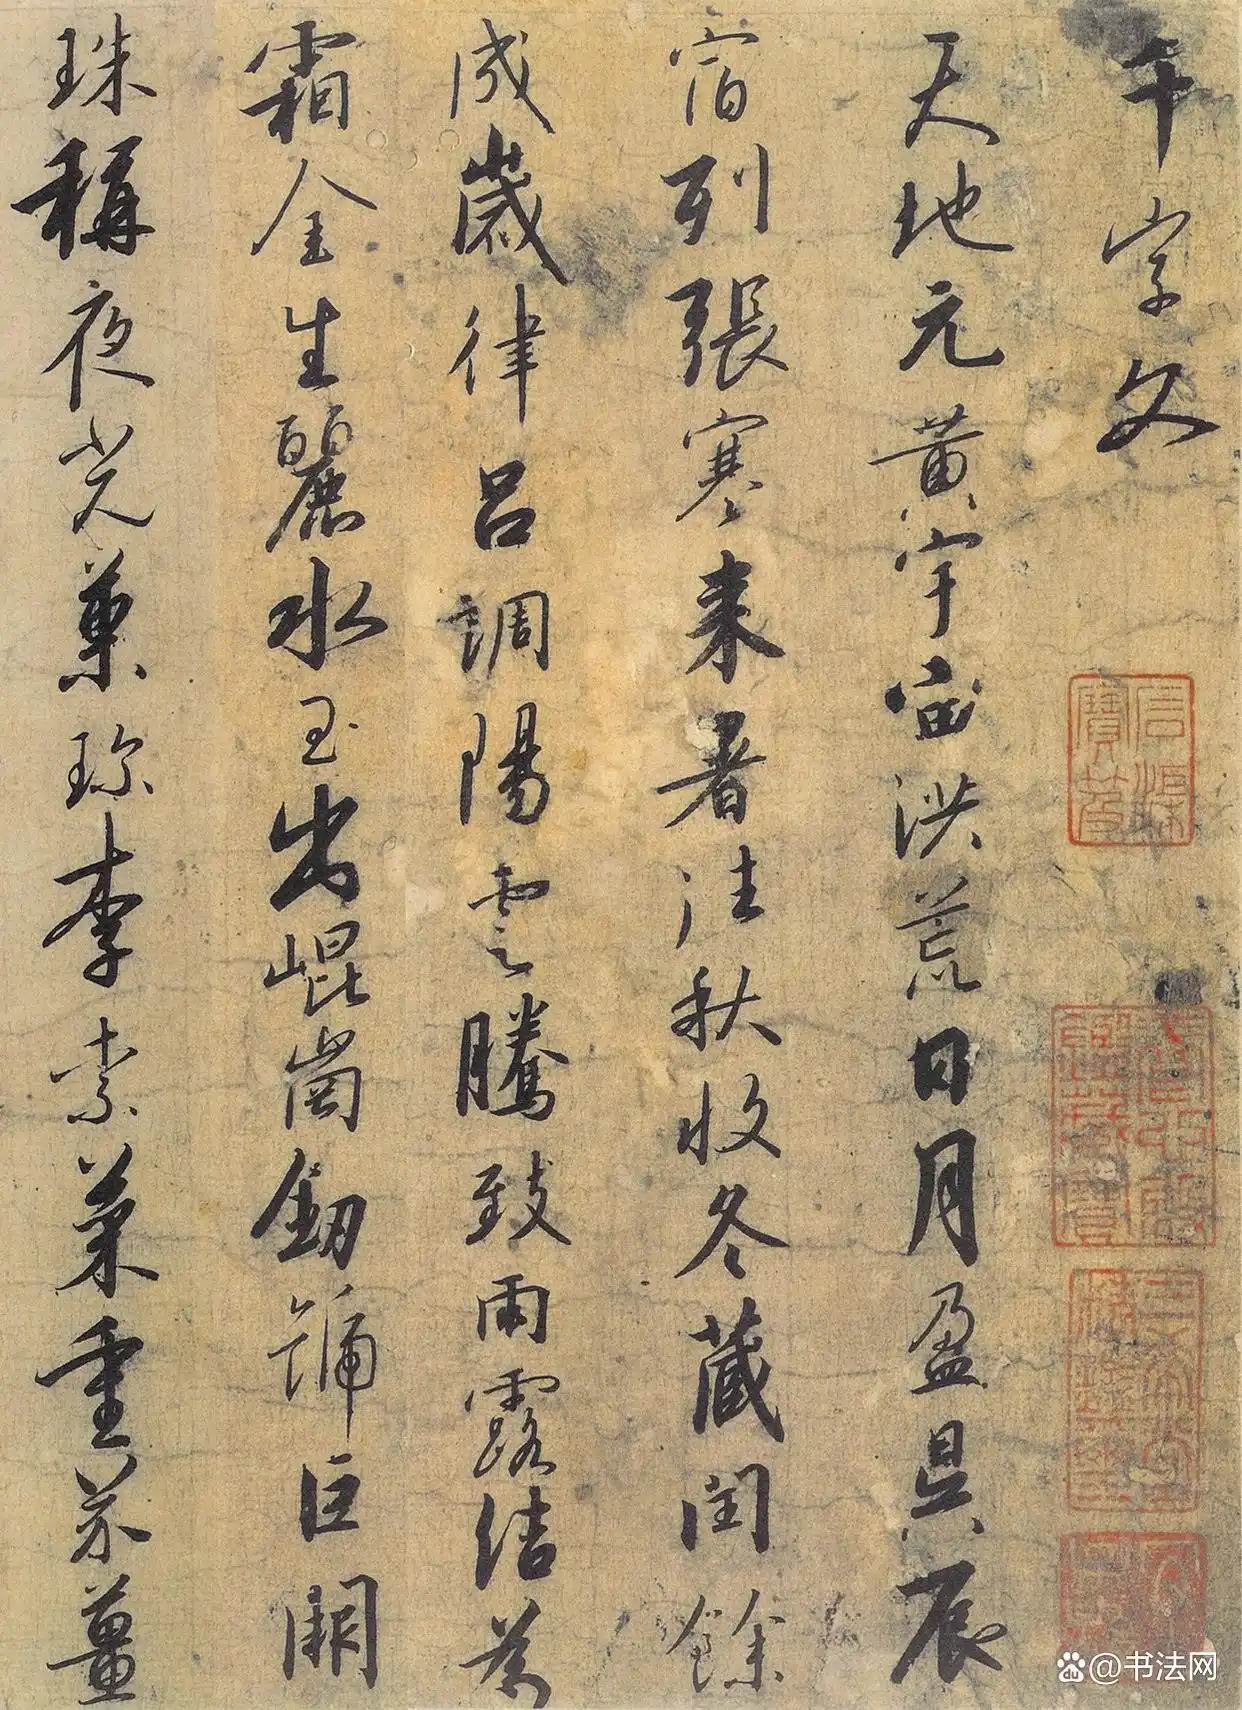 千字文
天地元黄宇宙洪荒日月盈昃辰
宿列張寒来暑往秋收冬藏閏餘
成歲律吕調陽雲騰致雨露結為
霜金生麗水玉出崐崗釼號巨闕
珠稱夜光菓珍李柰菜重芥薑
@书法网